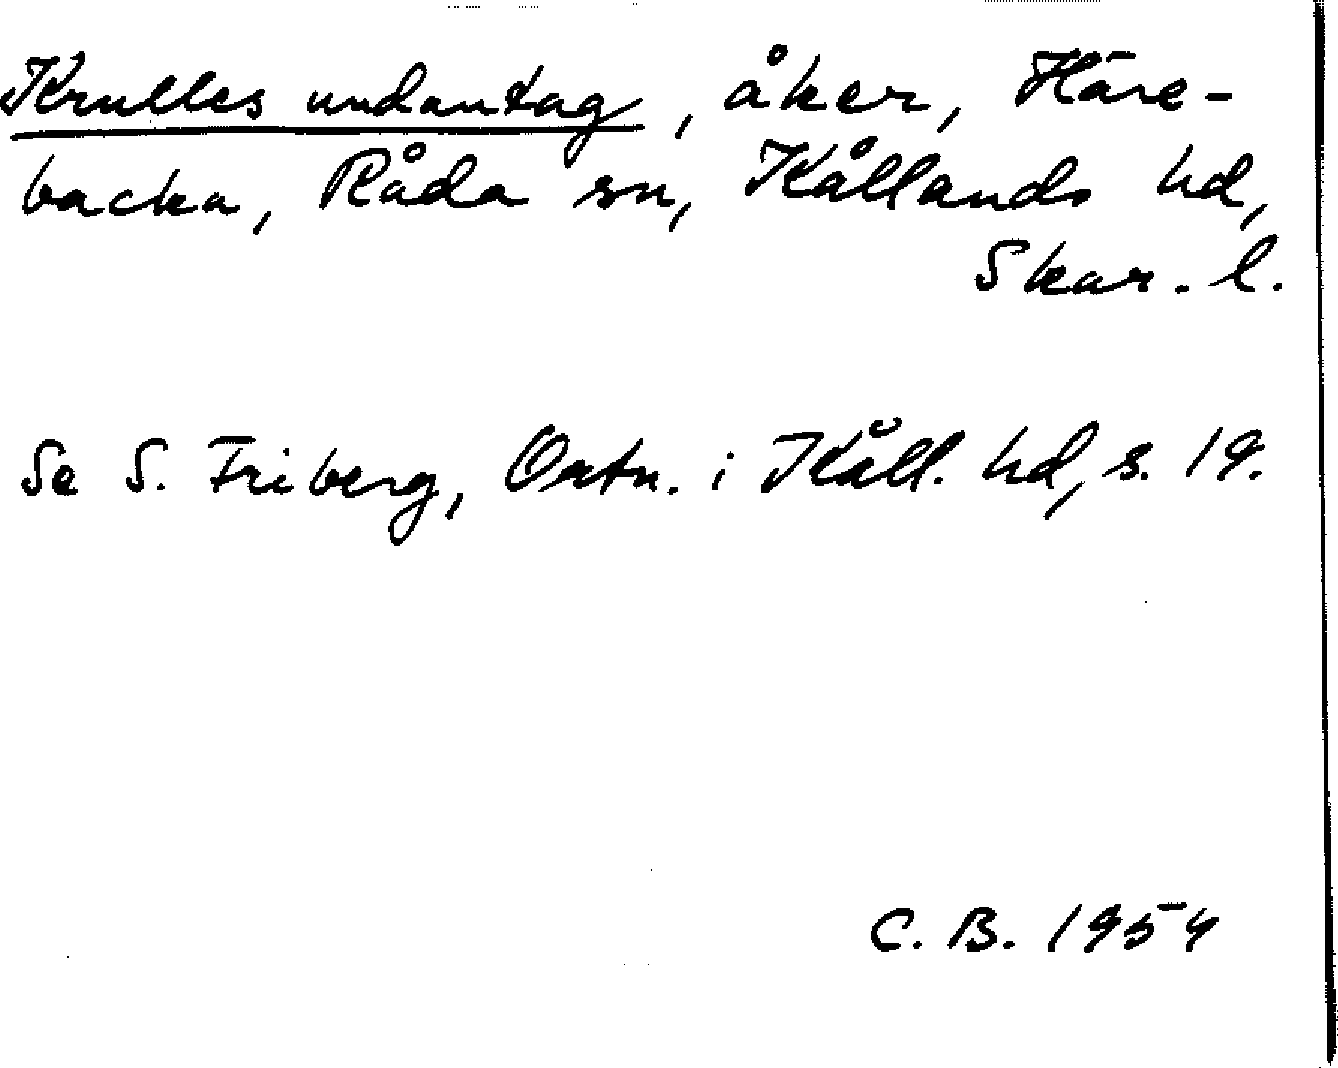 Krulles undantag, åker, Häre-
backa, Råda sn, Kållands hd,
Skar. l.
Se S. Friberg, Ortn. i Kåll. hd, s. 19.
C. B. 1954